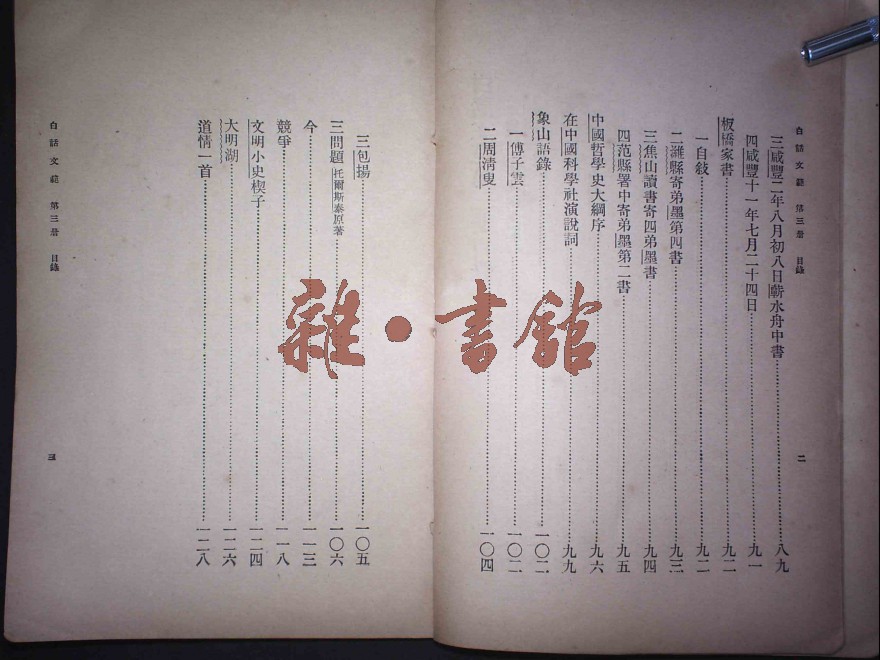 白話文範 第三册 目錄
三咸豐二年八月初八日蘄水舟中書……八九
四咸豐十一年七月二十四日……九一
板橋家書……九二
一自敍……九二
二濰縣寄弟墨第四書……九三
三焦山讀書寄四弟墨書……九四
四范縣署中寄弟墨第二書……九五
中國哲學史大綱序……九六
在中國科學社演說詞……九九
象山語錄……一〇二
一傅子雲……一〇二
二周清叟……一〇四
二
三包揚……一〇五
三問題 托爾斯泰原著……一〇六
今……一一三
競爭……一一八
文明小史楔子……一二四
大明湖……一二六
道情一首……一二八
白話文範 第三册 目錄
三
雜·書館